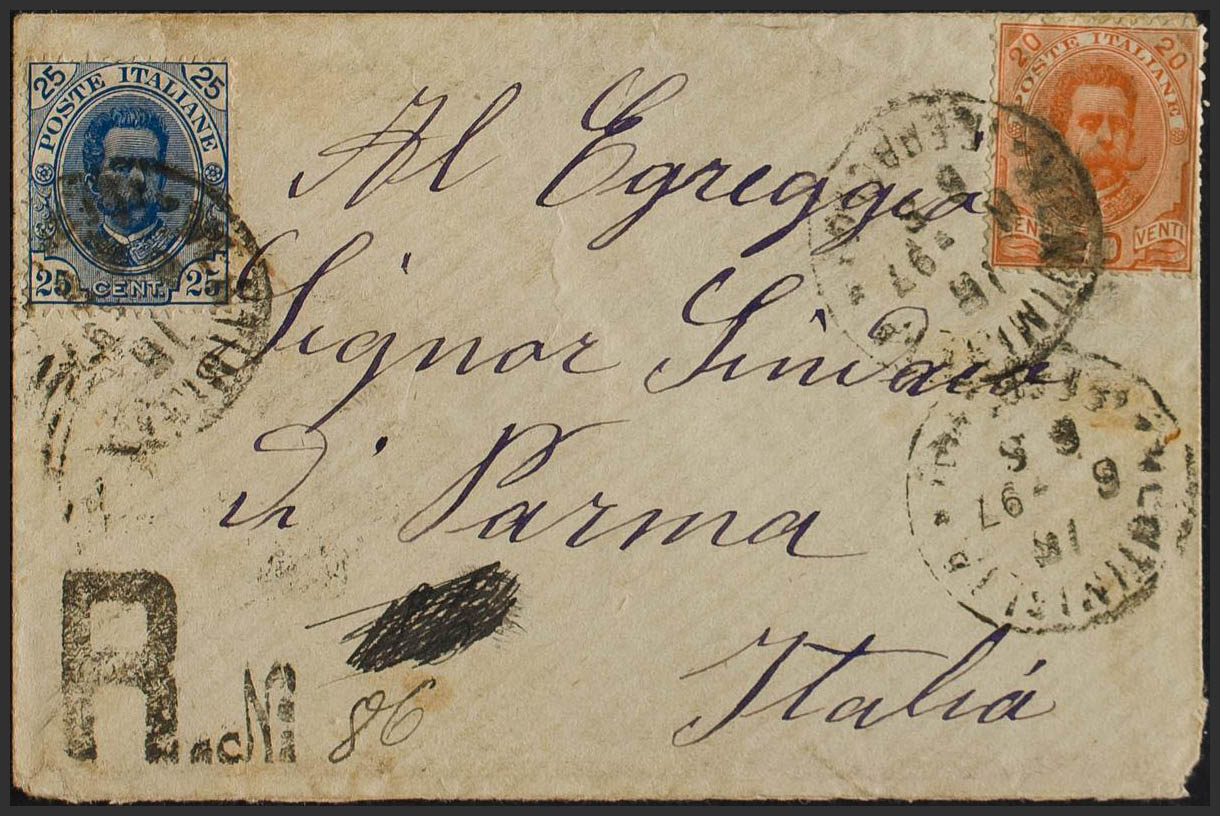 25 POSTE ITALIANE 25
25 CENT. 25
20 POSTE ITALIANE 20
VENTI
Al Egreggio
Signor Sindaco
di Parma
Italiá
97
18
6
5
97
18
R N
86